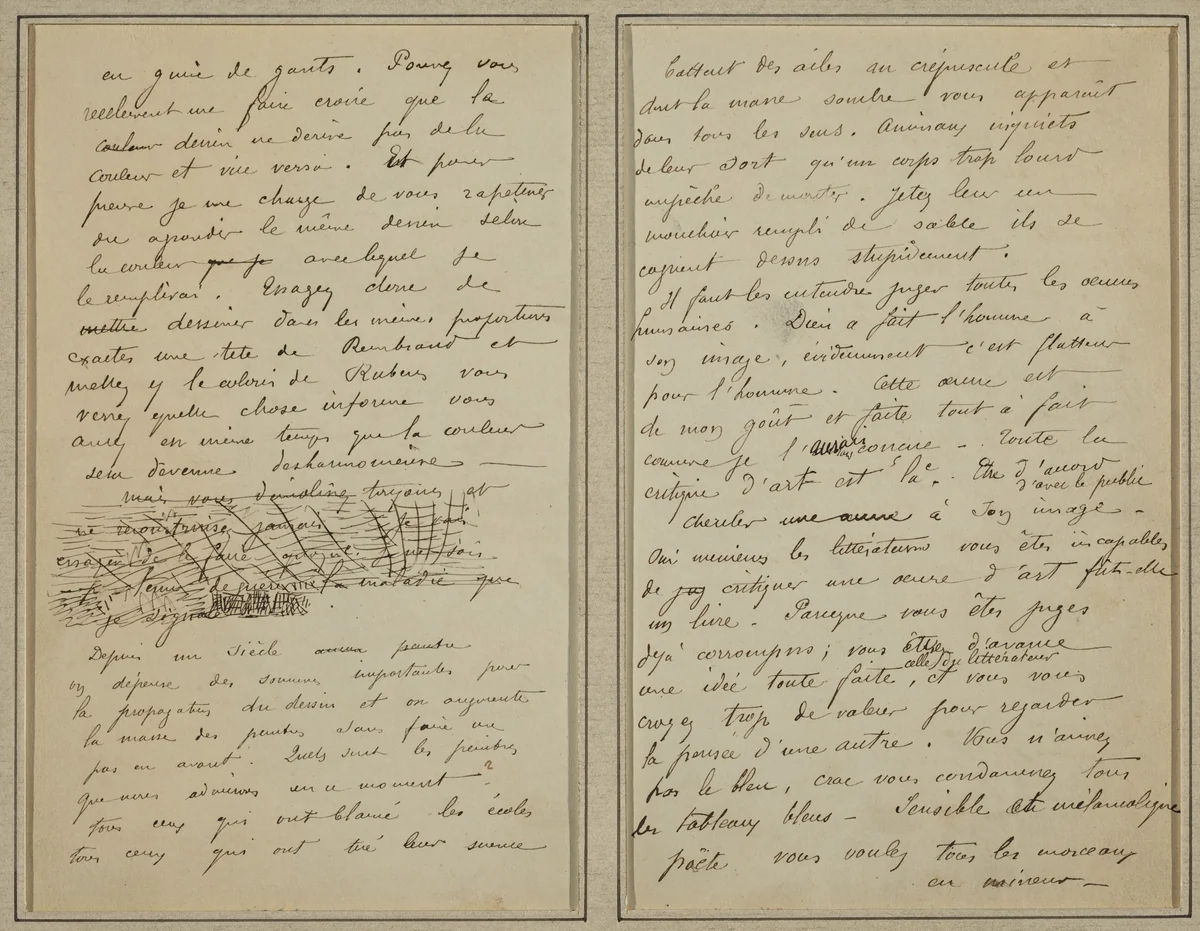 en guise de gants. Pouvez vous
reellement me faire croire que la
couleur dessin ne derive pas de la
couleur et vice versa. Et pour
preuve je me charge de vous rapetisser
ou agrandir le même dessin selon
la couleur que je avec lequel je
le remplirai. Essayez donc de
mettre dessiner dans les mêmes proportions
exactes une tête de Rembrand et
mettez y le coloris de Rubens vous
verrez quelle chose informe vous
aurez en même temps que la couleur
sera devenue desharmonieuse —
mais vous démolirez toujours et
ne reconstruisez jamais Je vais
essayer de le faire
temps de guérir la maladie que
je signal
Depuis un siècle pendu
on dépense des sommes importantes pour
la propagation du dessin et on augmente
la masse des peintres sans faire un
pas en avant. Quels sont les peintres
que nous admirons en ce moment ?
tous ceux qui ont blamé les écoles
tous ceux qui ont tiré leur science
battant des ailes au crépuscule et
dont la masse sombre vous apparaît
dans tous les sens. Animaux inquiets
de leur sort qu'un corps trop lourd
empêche de monter. Jetez leur un
mouchoir rempli de sable ils se
cognent dessus stupidement.
Il faut les entendre juger toutes les œuvres
humaines. Dieu a fait l'homme à
son image, évidemment c'est flatteur
pour l'homme. Cette œuvre est
de mon goût et faite tout à fait
comme je l'aurais concue — Toute la
critique d'art est là. Etre d'accord
d'avec le public
chercher une œuvre à son image —
Oui messieurs les littérateurs vous êtes incapables
de jug critiquer une œuvre d'art fut-elle
un livre. Parceque vous êtes juges
déjà corrompus; vous d'avance
une idée toute faite, celle du littérateur et vous vous
croyez trop de valeur pour regarder
la pensée d'une autre. Vous n'aimez
pas le bleu, crac vous condamnez tous
les tableaux bleus — Sensible et mélancolique
poète vous voulez tous les morceaux
en mineur —